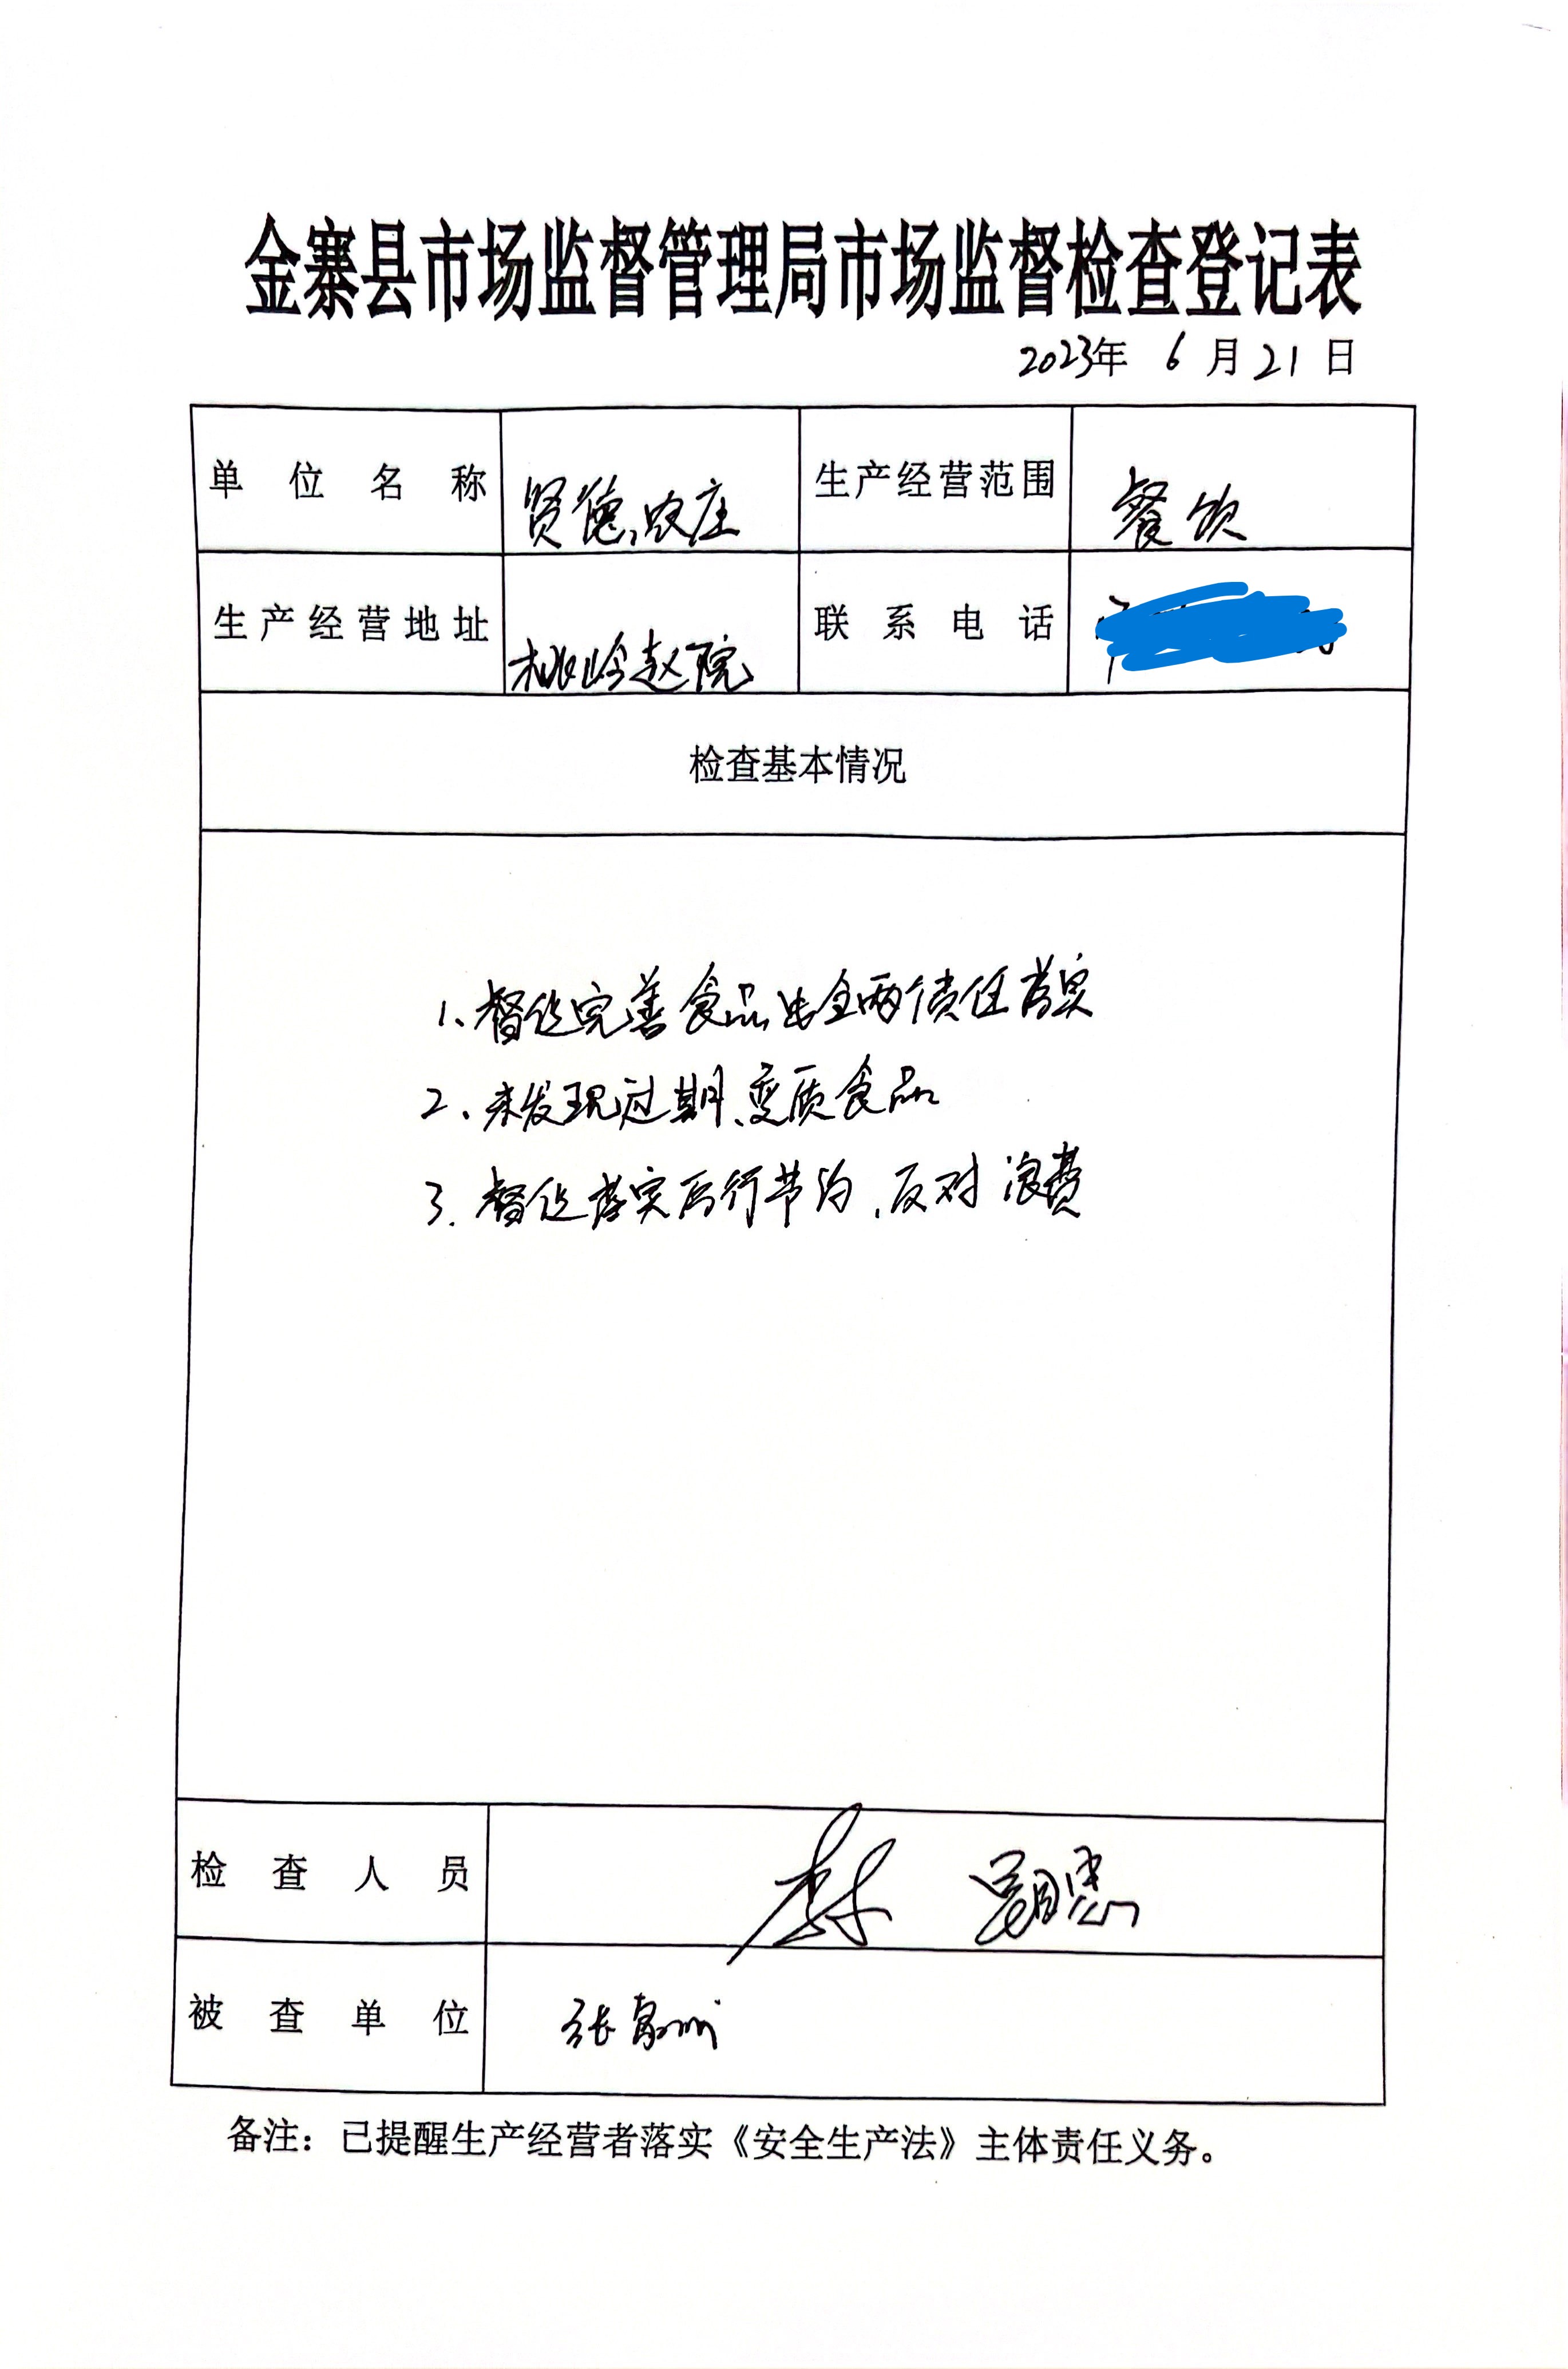 金寨县市场监督管理局市场监督检查登记表
2023年 6月21日
单位名称 贤德农庄 生产经营范围 餐饮
生产经营地址 桃岭赵院 联系电话
检查基本情况
1、督促完善食品安全两个责任落实
2、未发现过期、变质食品
3、督促落实厉行节约、反对浪费
检查人员
被查单位 张
备注：已提醒生产经营者落实《安全生产法》主体责任义务。